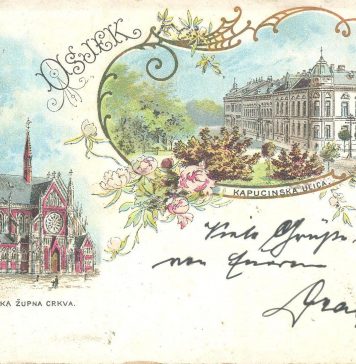 OSJEK
KAPUCINSKA ULICA.
KA ŽUPNA CRKVA.
Viele Grüße
von Eurem